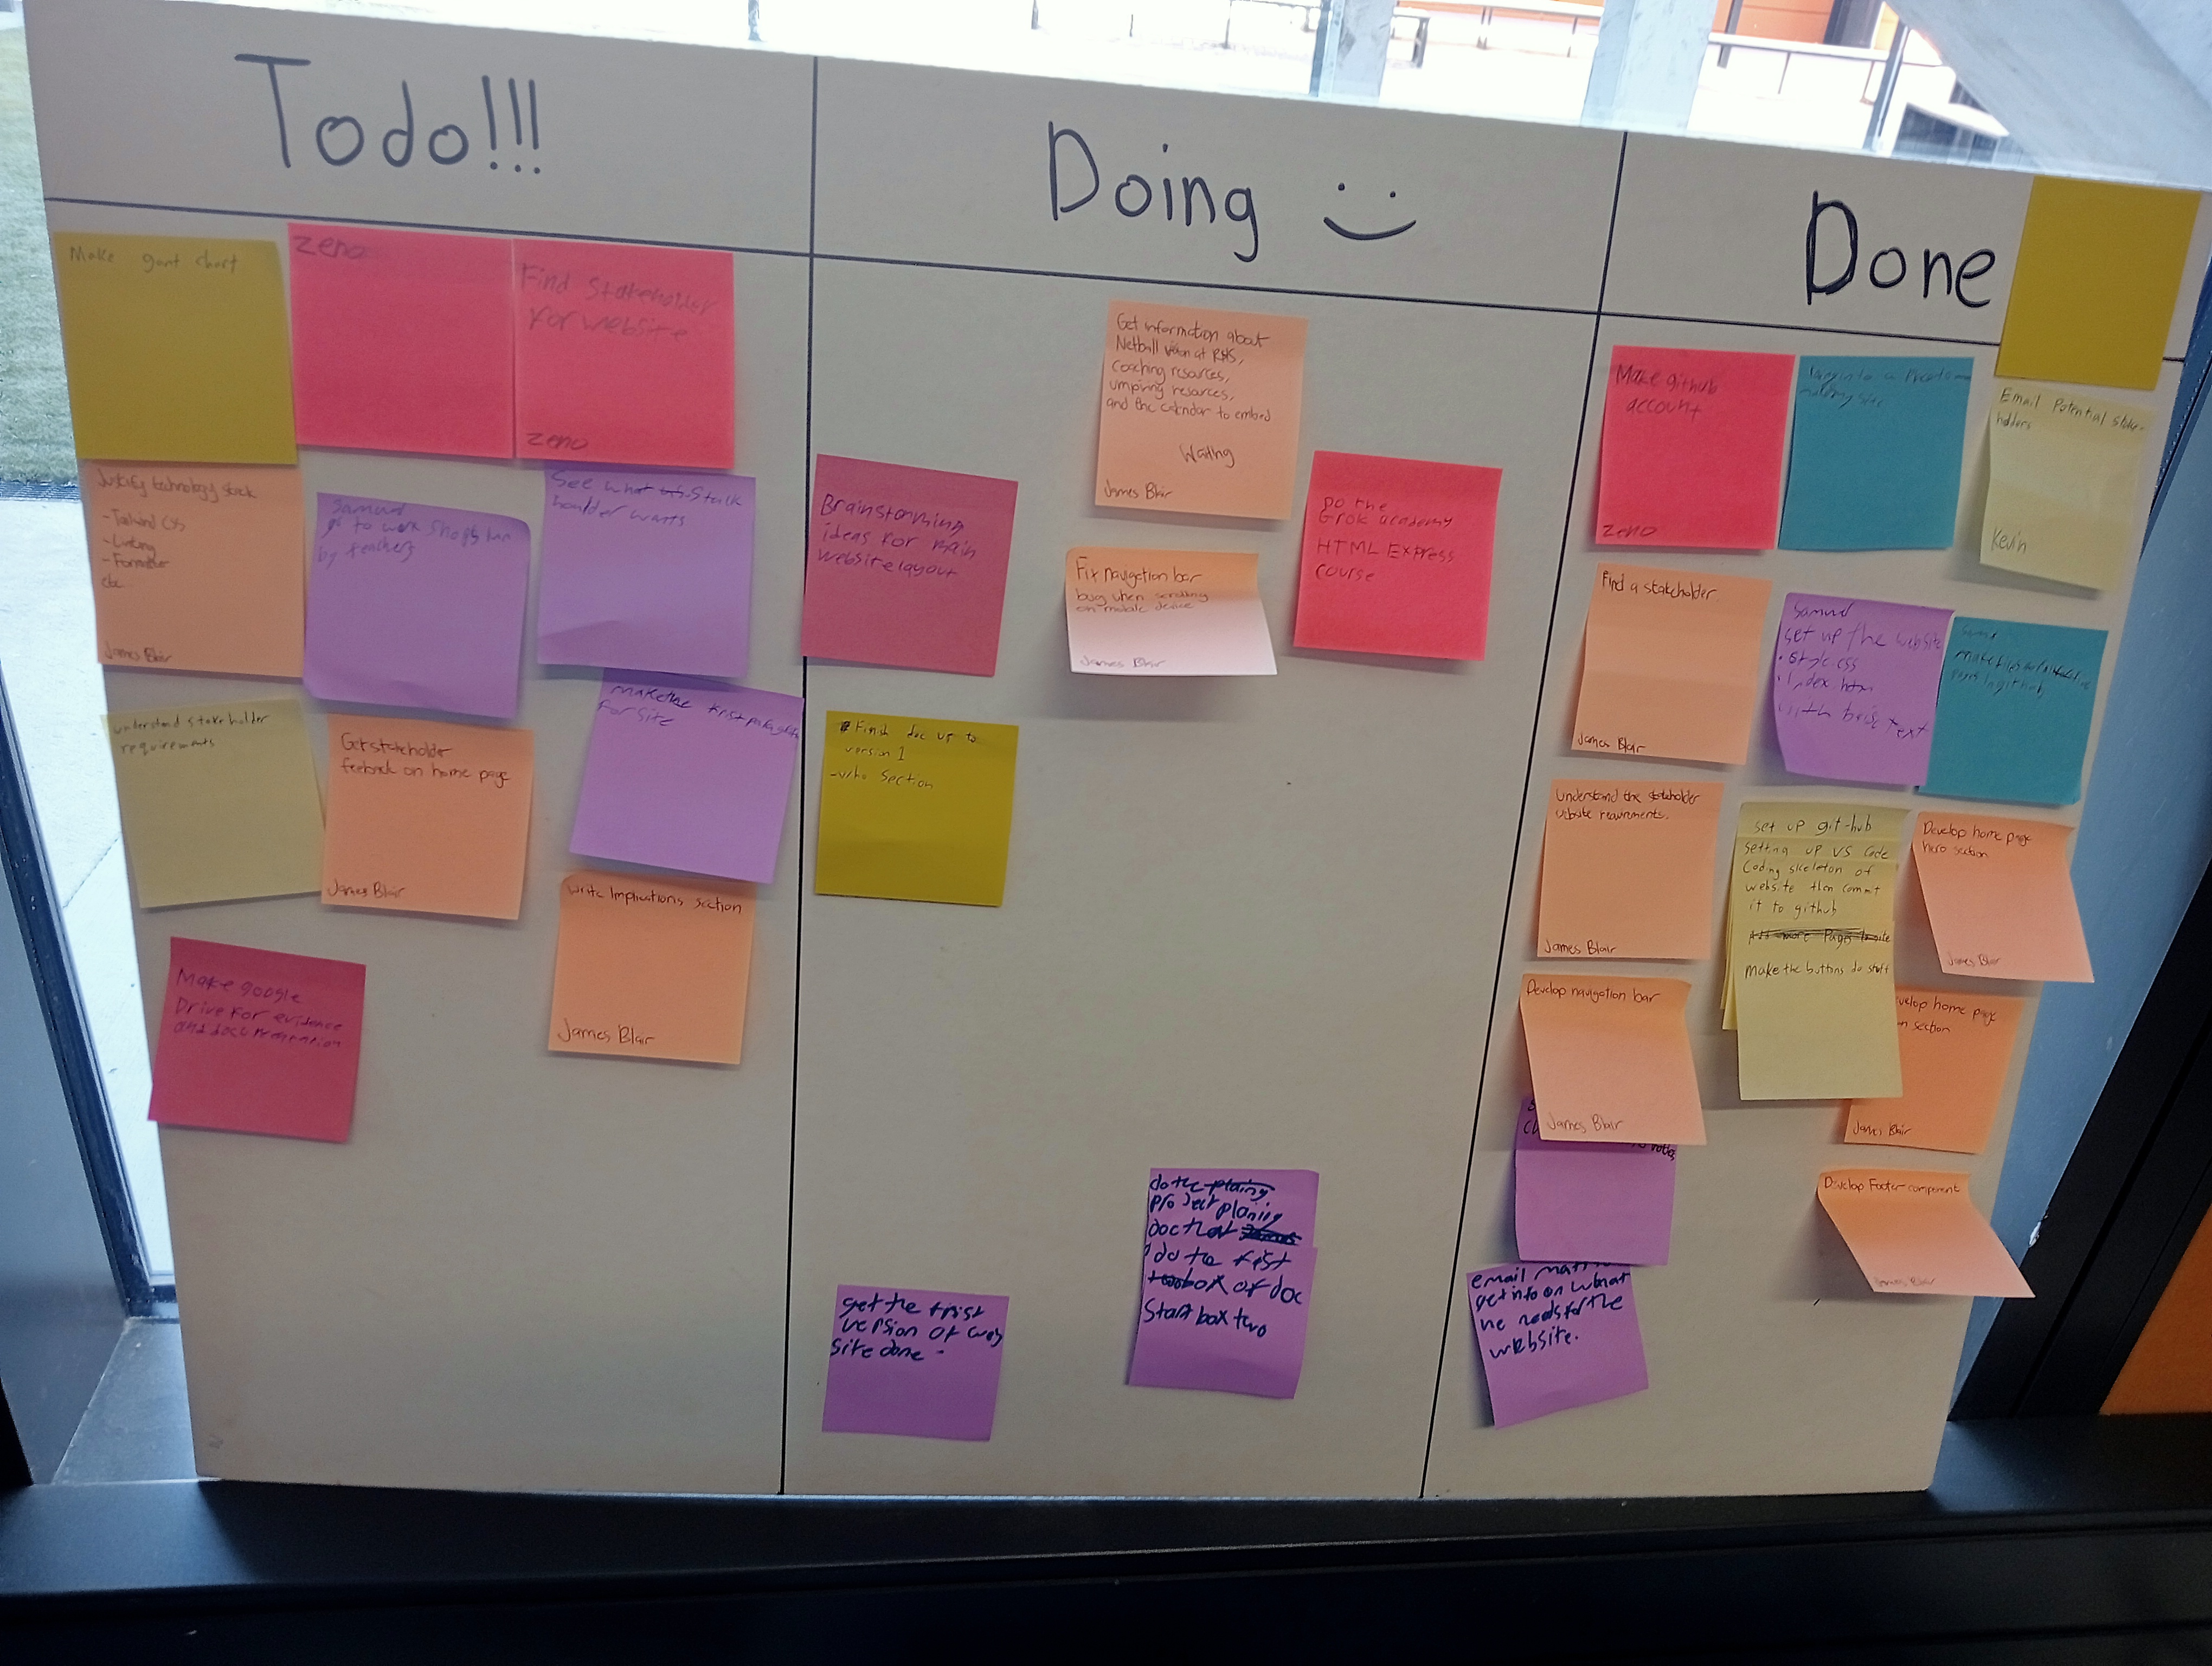 Todo!!!
Make gant chart
zeno
Find Stakeholder
for website
zeno
Justify technology stack
- Tailwind CSS
- Linting
- Formatter
etc.
James Blair
Samual
go to work shops run
by teachers
See what stalk
houlder wants
understand stakeholder
requirements
Get stakeholder
feeback on home page
James Blair
make the frist
for site
Write Implications section
James Blair
Make google
Drive for evidence
and documentation
Doing :)
Get information about
Netball at
coaching resources,
umpiring resources,
and the calendar to embed
Waiting
James Blair
Brainstorming
ideas for main
website layout
Fix navigation bar
bug when scrolling
on mobile device
James Blair
Do the
Grok academy
HTML Express
course
Finish doc up to
version 1
section
get the frist
version of web
site done -
do the plaing
project planing
doc
do the fist
box of doc
Start box two
Done
Make github
account
zeno
Email Potential stake-
holders
Kevin
Find a stakeholder
James Blair
Samual
set up the website
. style.css
. index
with basic text
make
pages in github
understand the stakeholder
website requirements.
James Blair
set up git-hub
setting up VS Code
Coding skeleton of
website then commit
it to github
Add more Pages to site
Make the buttons do stuff
Develop home page
hero section
James Blair
Develop navigation bar
James Blair
velop home page
section
James Blair
Develop Footer component
James Blair
email
get info on what
he needs for the
website.